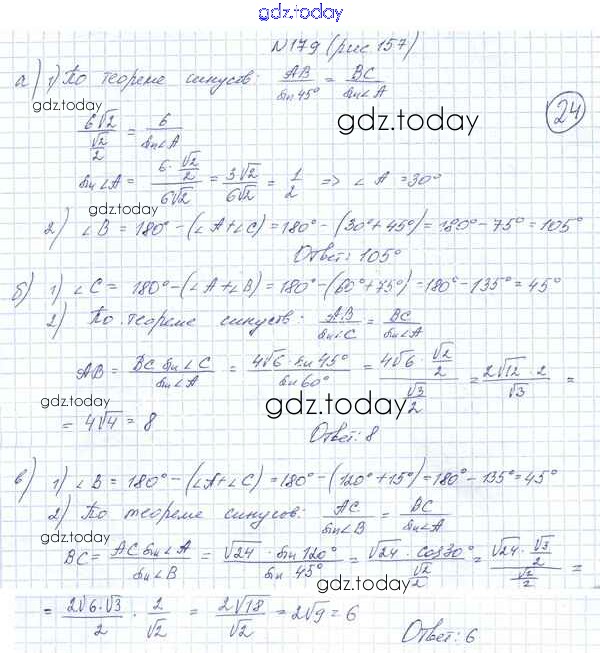 gdz.today
N179 (рис 157)
а) 1) По теореме синусов: AB/sin45° = BC/sin∠A
gdz.today
24
gdz.today
6√2/(√2/2) = 6/sin∠A
sin∠A = (6·√2/2)/(6√2) = 3√2/6√2 = 1/2 => ∠A = 30°
gdz.today
2) ∠B = 180° - (∠A+∠C) = 180° - (30°+45°) = 180° - 75° = 105°
Ответ: 105°
б) 1) ∠C = 180° - (∠A+∠B) = 180° - (60°+75°) = 180° - 135° = 45°
2) По теореме синусов: AB/sin∠C = BC/sin∠A
AB = BC sin∠C/sin∠A = 4√6·sin45°/sin60° = (4√6·√2/2)/(√3/2) = 2√12·2/√3 =
gdz.today
gdz.today
= 4√4 = 8
Ответ: 8
в) 1) ∠B = 180° - (∠A+∠C) = 180° - (120°+15°) = 180° - 135° = 45°
2) По теореме синусов: AC/sin∠B = BC/sin∠A
BC = AC sin∠A/sin∠B = √24·sin120°/sin45° = √24·cos30°/(√2/2) = (√24·√3/2)/(√2/2) =
gdz.today
gdz.today
= 2√6·√3/2 · 2/√2 = 2√18/√2 = 2√9 = 6
Ответ: 6